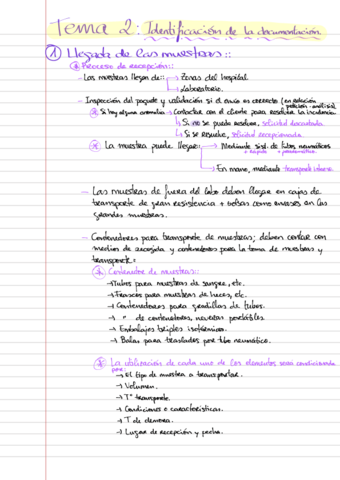 Tema 2: Identificación de la documentación
① Llegada de las muestras::
Proceso de recepción::
- Las muestras llegan de: → Zonas del hospital.
→ Laboratorio.
- Inspección del paquete y validación si el envío es correcto (en relación
petición - análisis)
Si hay alguna anomalía → Contactar con el cliente para resolver la incidencia
↳ Si no se puede resolver, solicitud descartada
↳ Si se resuelve, solicitud recepcionada.
La muestra puede llegar: → Mediante sist. de tubos neumáticos
+ rápida
→ En mano, mediante transporte interno
- Las muestras de fuera del labo deben llegar en cajas de
transporte de gran resistencia + bolsas como envases en las
grandes muestras.
- Contenedores para transporte de muestras; deben contar con
medios de recogida y contenedores para la toma de muestras y
transporte:
Contenedor de muestras::
→ Tubos para muestras de sangre, etc.
→ Frascos para muestras de heces, etc.
→ Contenedores para gradillas de tubos.
→ " de contenedores, neveras portátiles.
→ Embalajes triples isotérmicos.
→ Balas para traslados por tubo neumático.
La utilización de cada uno de los elementos será condicionada
por:
→ El tipo de muestra a transportar.
→ Volumen.
→ Tº transporte
→ Condiciones o características.
→ T de demora.
→ Lugar de recepción y fecha.